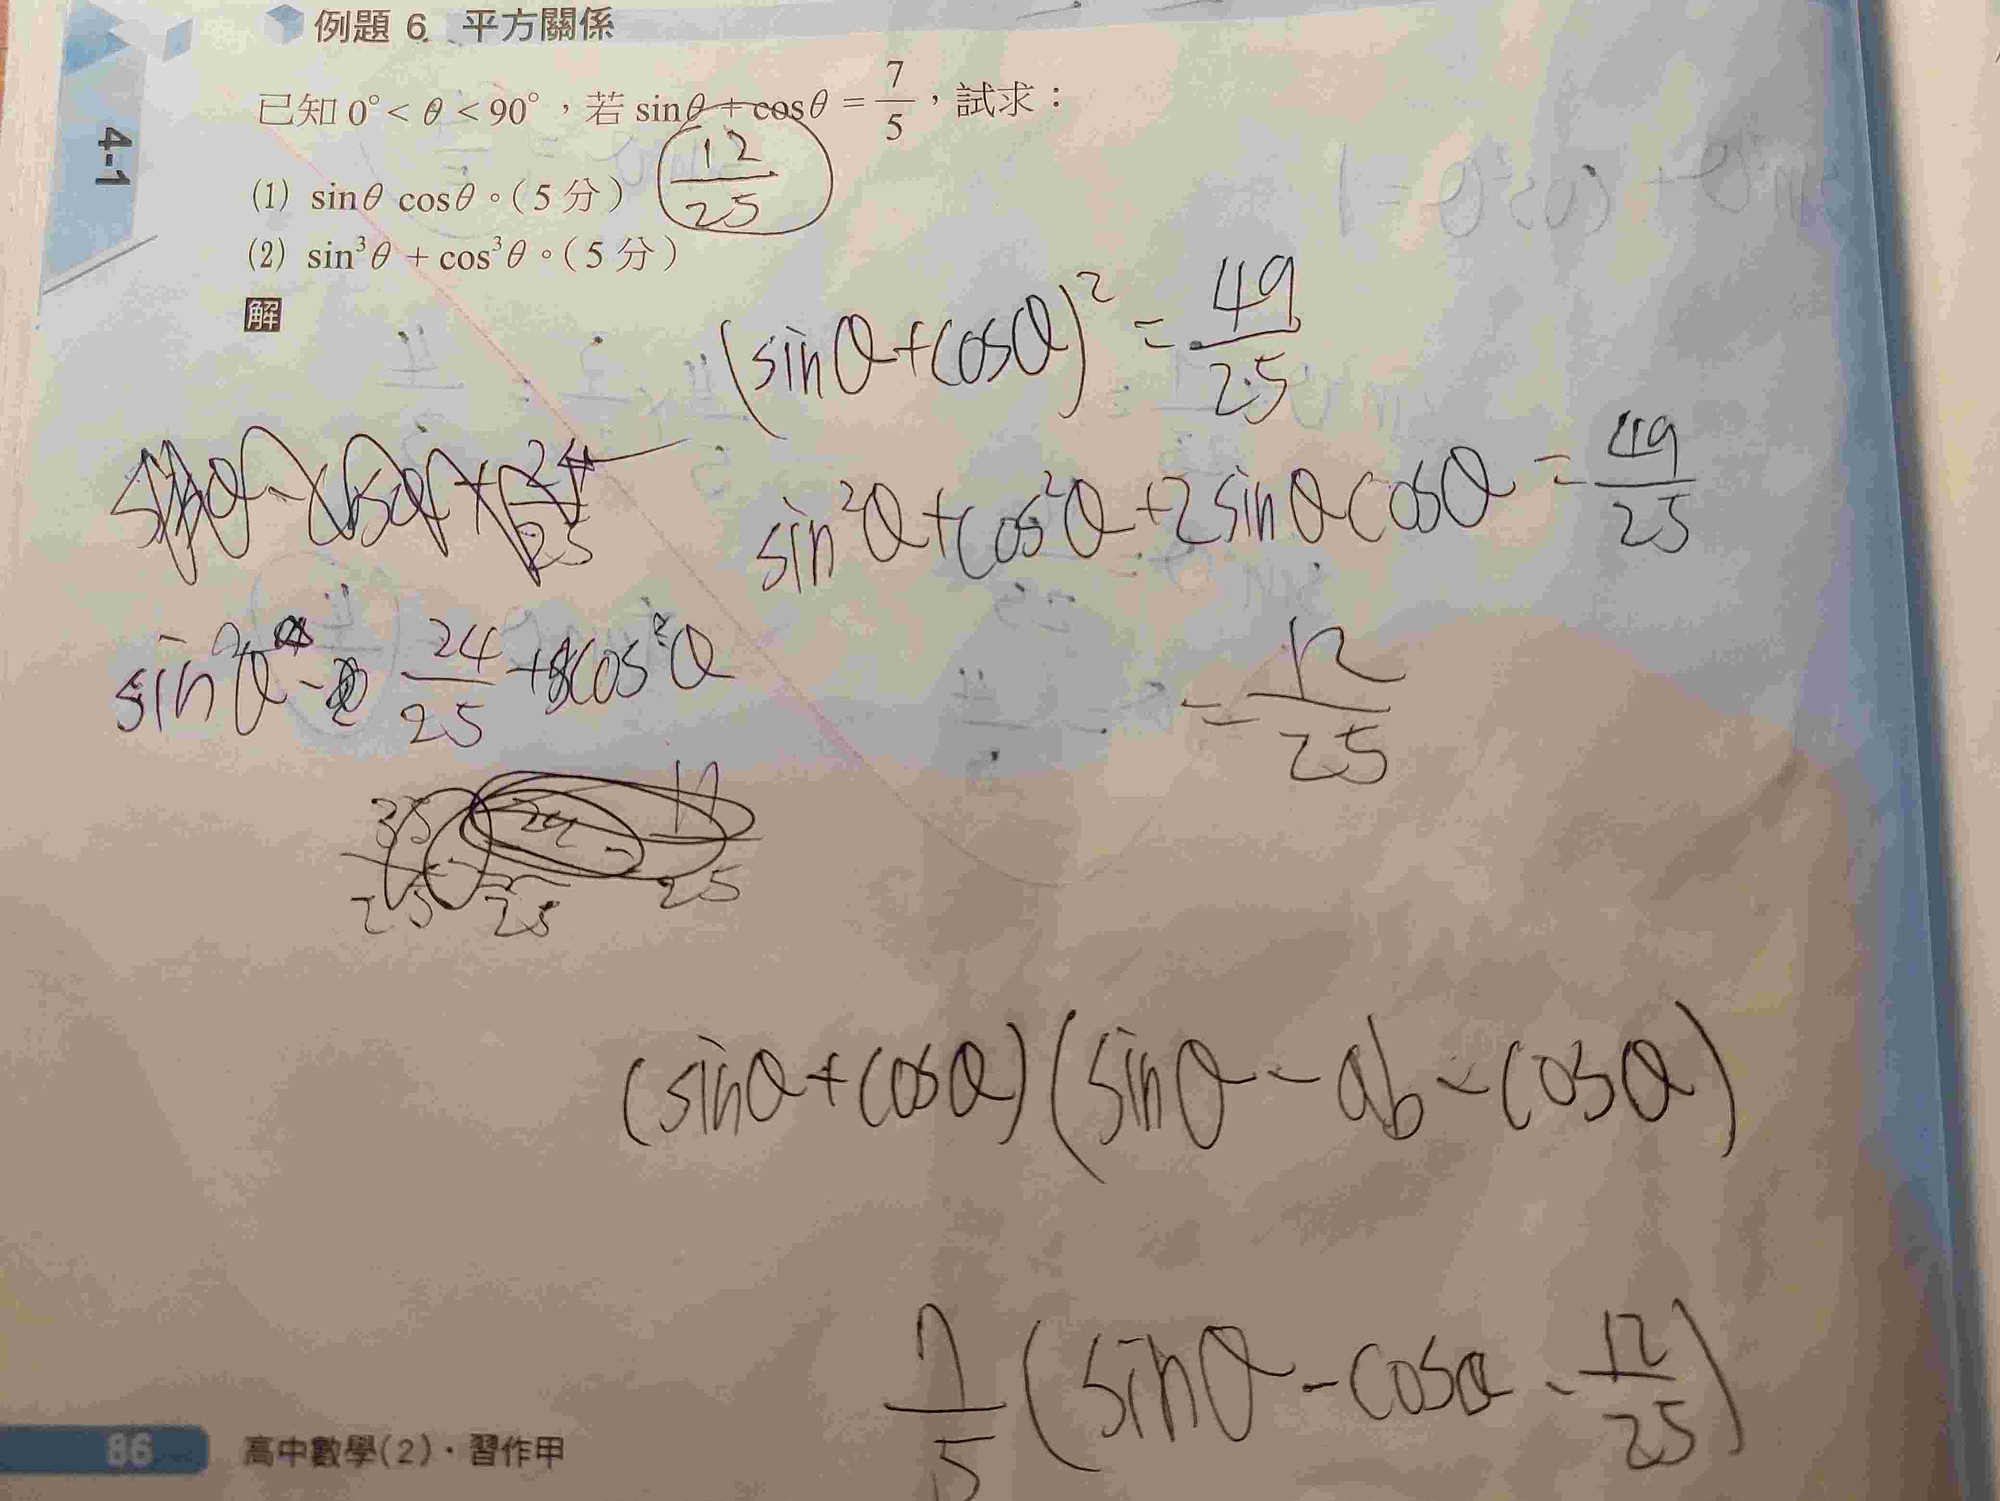 例題 6 平方關係
已知 0° < θ < 90°，若 sinθ + cosθ = 7/5，試求：
4-1
(1) sinθ cosθ。(5 分) 12/25
(2) sin³θ + cos³θ。(5 分)
解
(sinθ+cosθ)² = 49/25
sin²θ+cos²θ+2sinθcosθ = 49/25
= 12/25
sin²θ - 24/25 + cos²θ
(sinθ+cosθ)(sinθ - ab - cosθ)
7/5 (sinθ - cosθ - 12/25)
86 高中數學(2)．習作甲